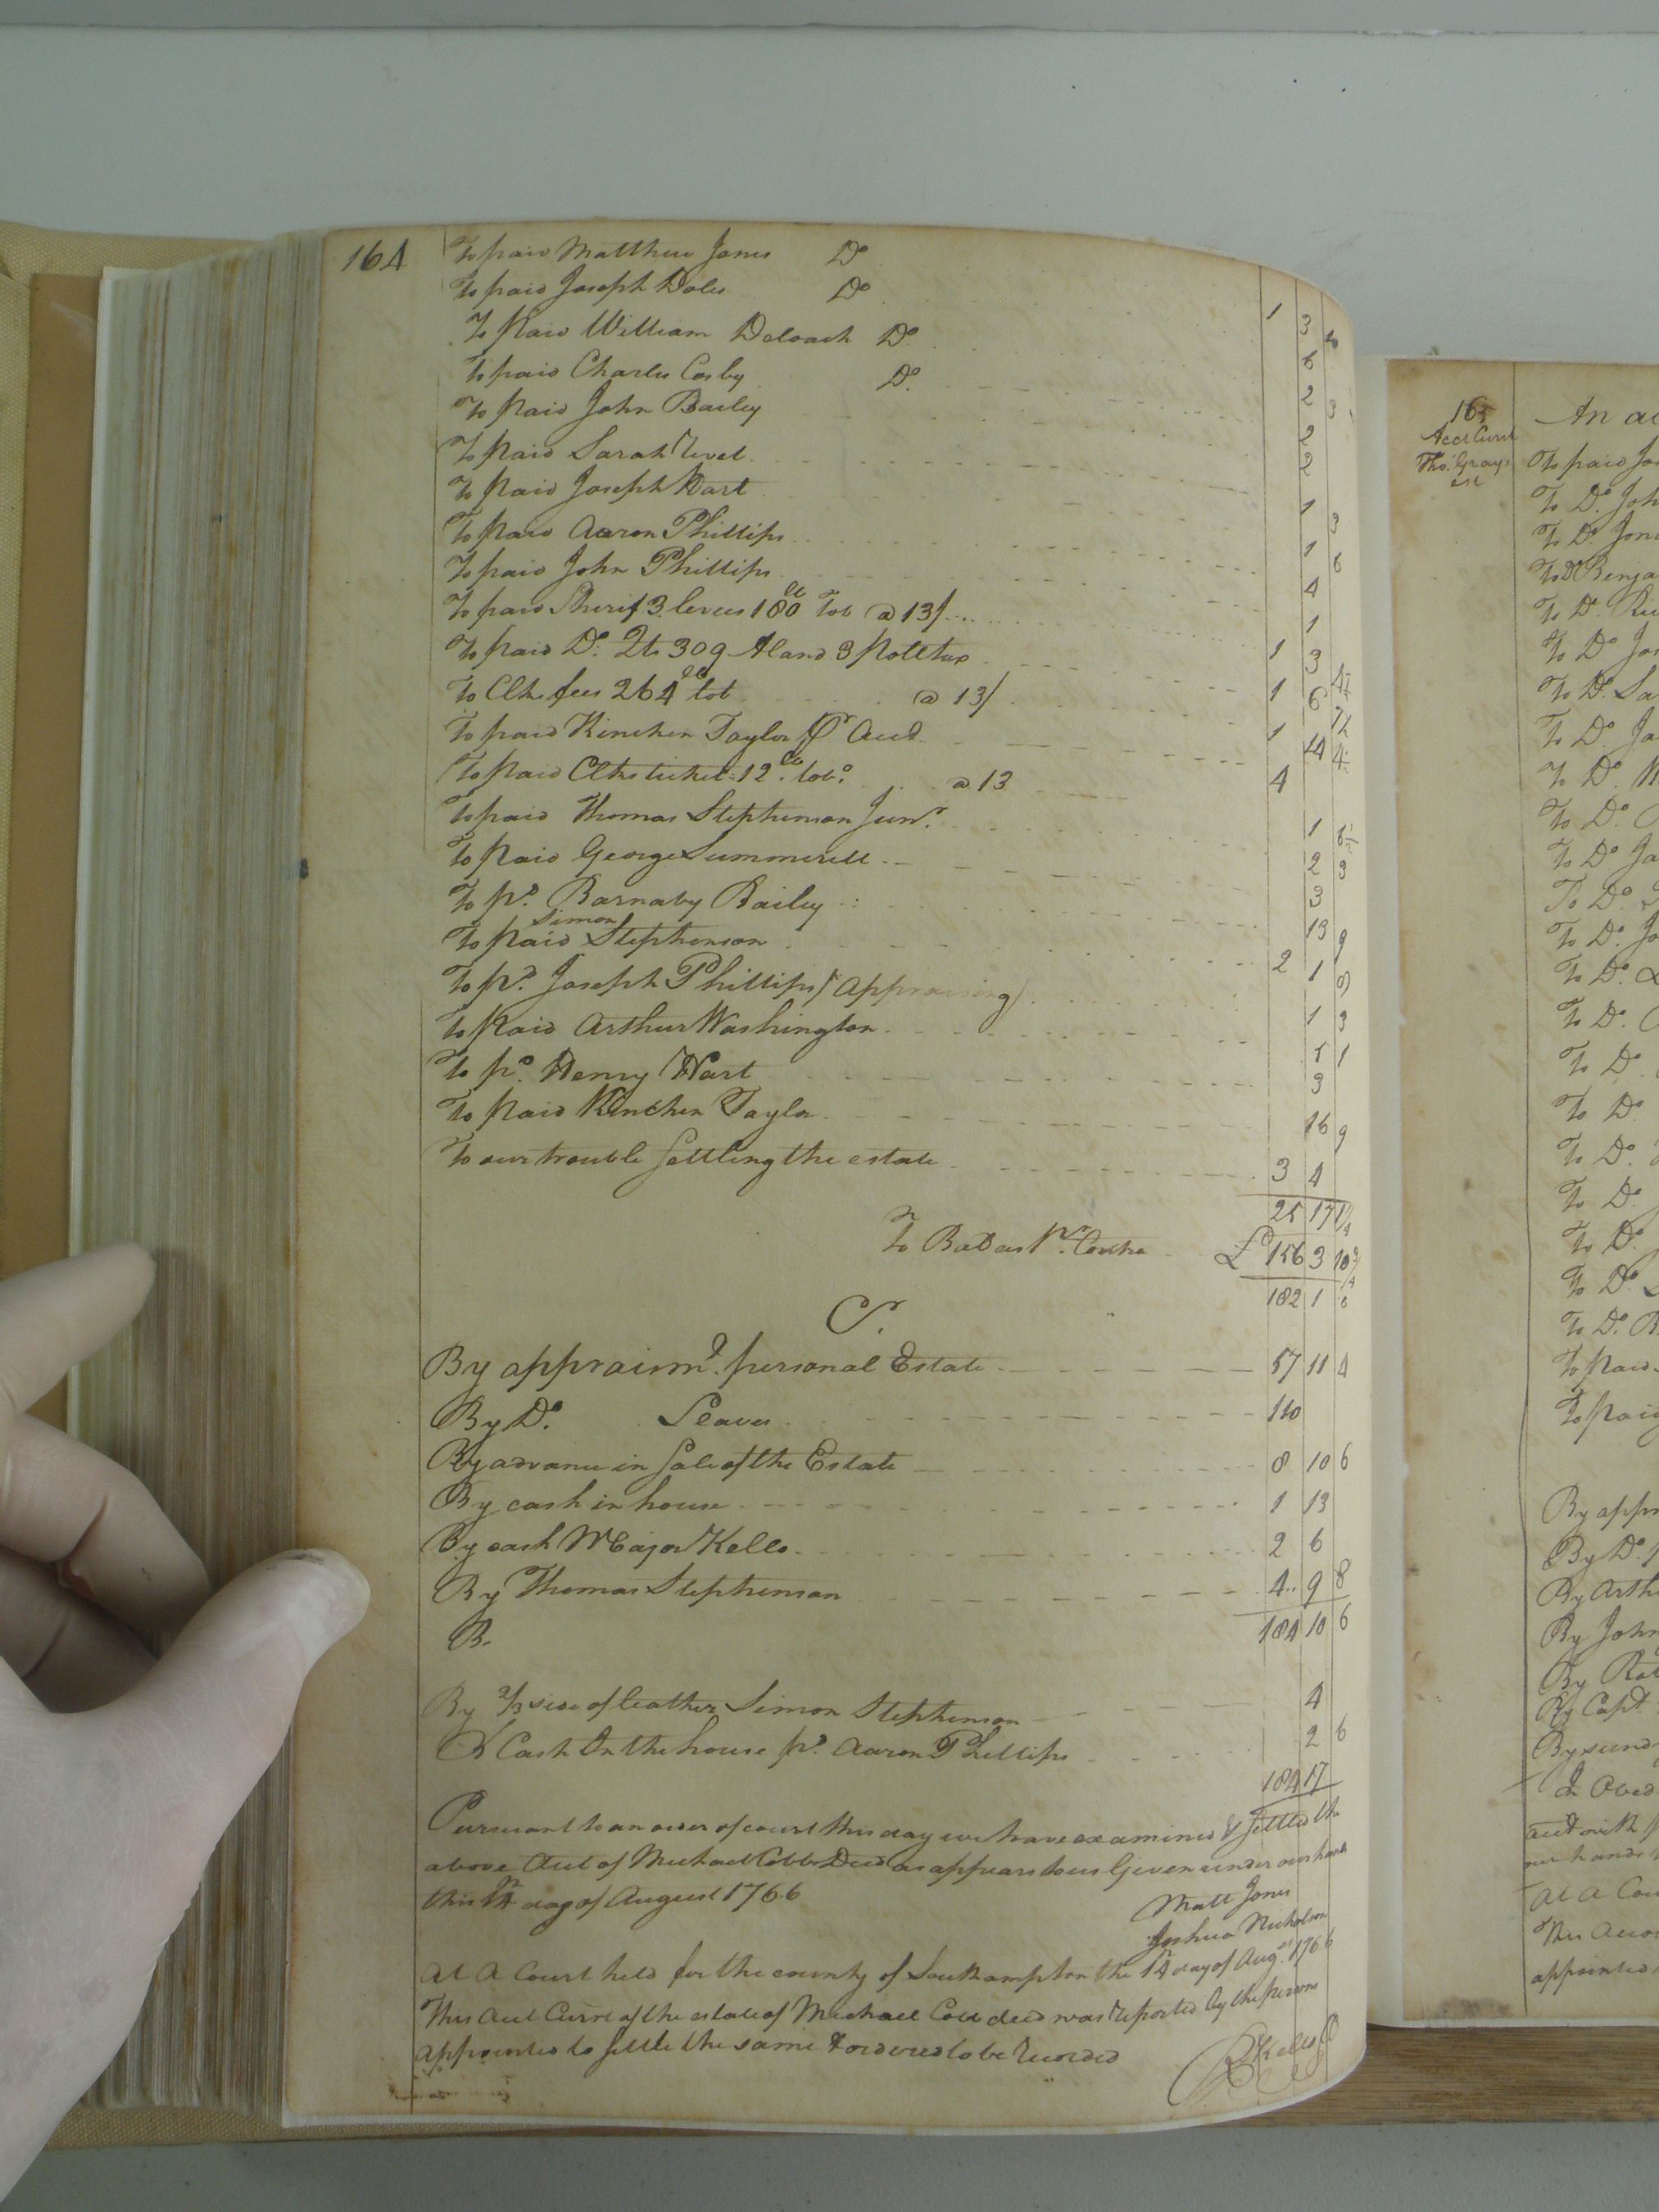 164
To paid Matthew Jones Do
To paid Joseph Doles Do 1 3
To paid William Deloach Do 6
To paid Charles Cosby Do 2 3
To paid John Bailey 2
To paid Sarah Revel 2
To paid Joseph Hart 1 3
To paid Aaron Phillips 1 6
To paid John Phillips 4
To paid Sherif 3 levies 180 lb Tob @ 13/ 1 3
To paid Do. 2ts 309 Aland 3 Polltax 1 6
To Clks fees 264 lb tob @ 13/ 1 14
To paid Kinchen Taylor Pr Acct 4
To paid Clks ticket 12 lb tobo @ 13 1
To paid Thomas Stephenson Junr. 2 3
To paid George Summerell 3
To pd. Barnaby Bailey 13 9
To paid Simon Stephenson 2 1
To pd. Joseph Phillips (Appraising) 1 3
To paid Arthur Washington 5 1
To pd. Henry Hart 3
To paid Kinchen Taylor 16 9
To our trouble settling the estate 3 4
25 17 1 1/4
To Ba pr. Contra £ 156 3 10 3/4
182 1
Cr.
By appraismt. personal Estate 57 11 4
By Do. Slaves 110
By advance in sale of the Estate 8 10 6
By cash in house 1 13
By cash Major Kello 2 6
By Thomas Stephenson 4 9 8
B. 184 10 6
By 2/3 side of leather Simon Stephenson 4
& Cash In the house pd. Aaron Phillips 2 6
184 17
Pursuant to an order of court this day we have examined & settled the
above Acct of Michael Cobb Decd as appears to us Given under our hands
this 14th day of August 1766
Matt Jones
Joshua Nicholson
At A Court held for the county of Southampton the 14th day of Augst 1766
This Acct Curre of the estate of Michael Cobb decd was reported by the persons
appointed to settle the same & ordered to be recorded
R Kello
165
Acct Curt
Tho. Grays
est
An ac
To paid Jo
To Do. Joh
To Do. Jon
To Do Benja
To Do.
To Do Jo
To Do. Sa
To Do. Ja
To Do.
To Do.
To Do Ja
To Do.
To Do. Jo
To Do.
To Do.
To Do.
To Do.
To Do.
To Do
To Do.
To Do.
To Do. B
To paid
To paid
By appr
By Do. p
By Arth
By John
By Rob
By Capt
By sund
In Obed
acct with
our hands
At A Cou
This Accou
appointed